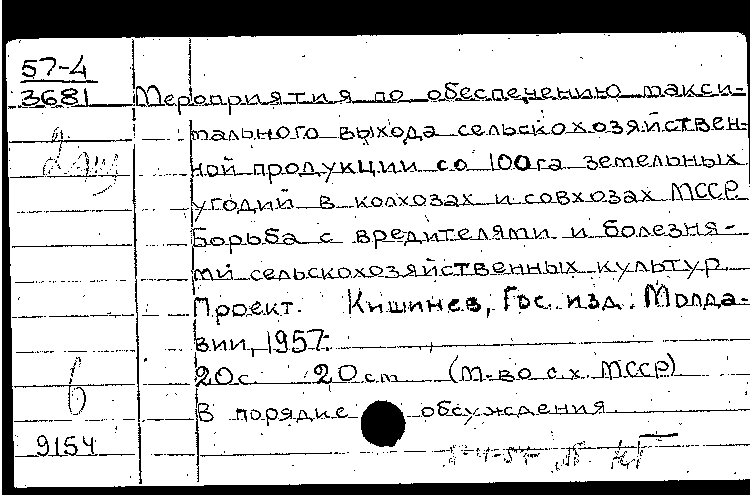 57-4
3681 Мероприятия по обеспечению макси-
мального выхода сельскохозяйствен-
2 экз
ной продукции со 100га земельных
угодий в колхозах и совхозах МССР.
Борьба с вредителями и болезня-
ми сельскохозяйственных культур.
Проект. Кишинев, Гос. изд. Молда-
вии, 1957.
20с. 20см (М-во с.х. МССР)
В порядке обсуждения.
9154